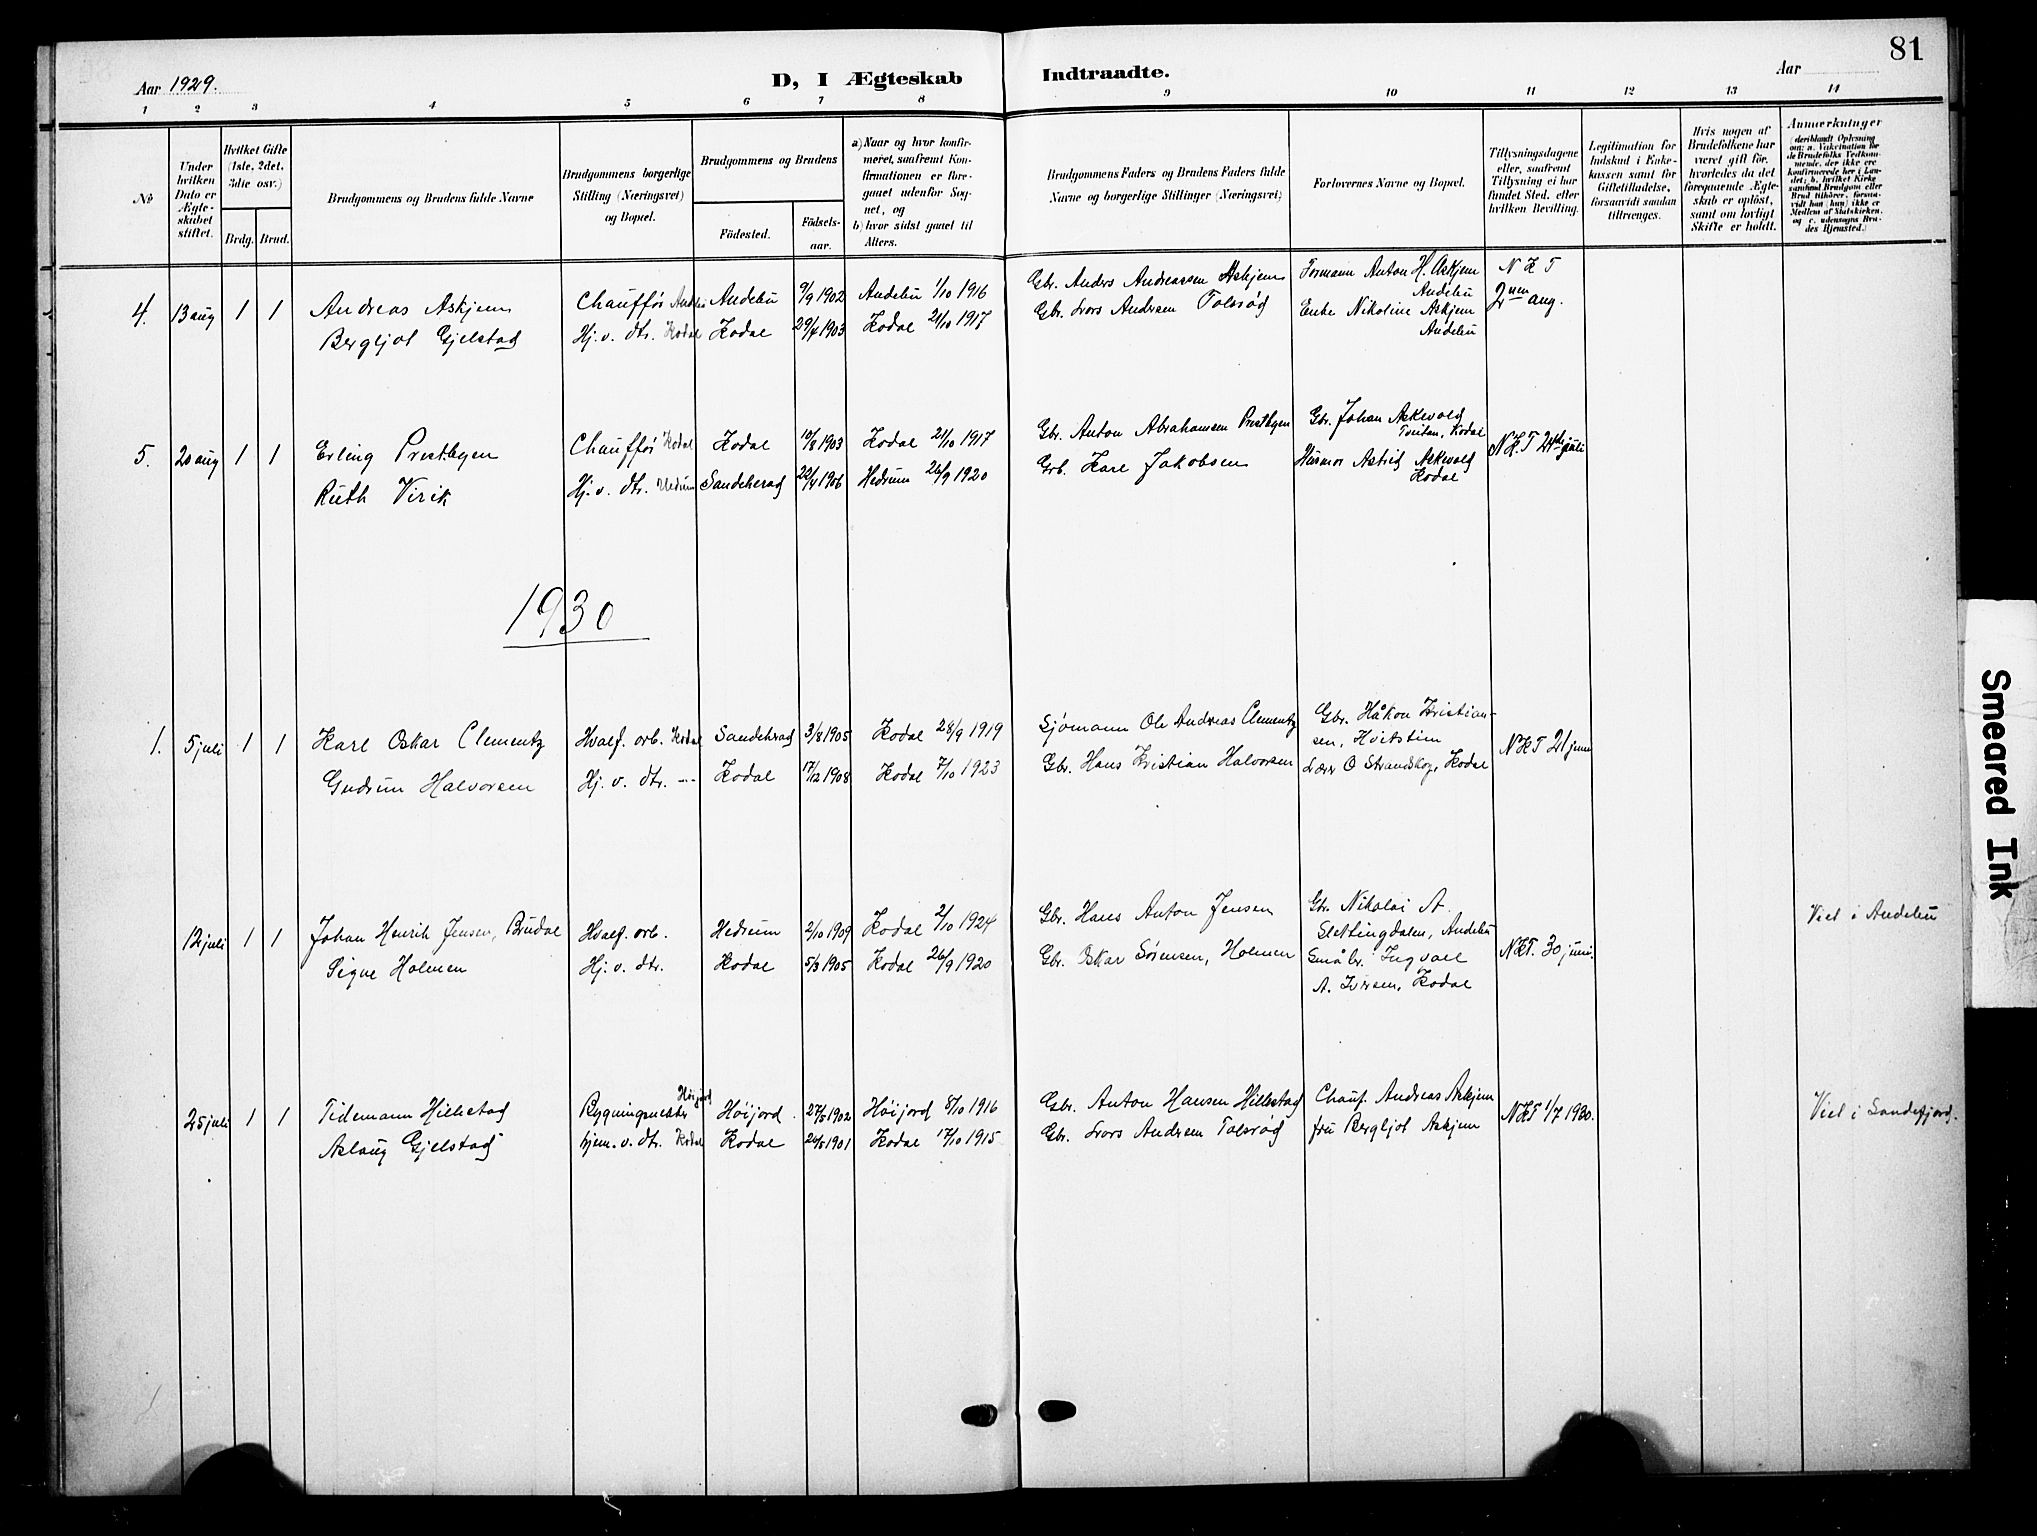 81
Aar 1929.
D, I Ægteskab Indtraadte.
Aar
1 2 3 4 5 6 7 8 9 10 11 12 13 14
No
Under hvilken Dato er Ægteskabet stiftet.
Hvilket Gifte (1ste, 2det, 3die osv.)
Brdg. Brud.
Brudgommens og Brudens fulde Navne
Brudgommens borgerlige Stilling (Næringsvei) og Bopæl.
Brudgommens og Brudens
Fødested.
Fødselsaar.
a) Naar og hvor konfirmeret, saafremt Konfirmationen er foregaaet udenfor Sognet, og
b) hvor sidst gaaet til Alters.
Brudgommens Faders og Brudens Faders fulde Navne og borgerlige Stillinger (Næringsvei)
Forlovernes Navne og Bopæl.
Tillysningsdagene eller, saafremt Tillysning ei har fundet Sted, efter hvilken Bevilling.
Legitimation for Indskud i Enkekassen samt for Giftetilladelse, forsaavidt saadan tiltrænges.
Hvis nogen af Brudefolkene har været gift før, hvorledes da det foregaaende Ægteskab er opløst, samt om lovligt Skifte er holdt.
Anmærkninger
(deriblandt Oplysning om: a. Vakcination for de Brudefolks Vedkommende, der ikke ere konfirmerede her i Landet; b. hvilket Kirkesamfund Brudgom eller Brud tilhører, forsavidt han (hun) ikke er Medlem af Statskirken, og c. udensogns Brudes Hjemsted.)
4. 13 aug 1 1 Andreas Askjem Chauffør Andebu Andebu 9/9 1902 Andebu 1/10 1916 Gbr. Anders Andreassen Askjem Formann Anton H. Askjem Andebu N K T 2nen aug.
Bergljot Gjelstad Hj. v. dtr. Kodal Kodal 29/4 1903 Kodal 21/10 1917 Gbr. Lars Andersen Tolsrød Enke Nikoline Askjem Andebu
5. 20 aug 1 1 Erling Prestbyen Chauffør Kodal Kodal 10/8 1903 Kodal 21/10 1917 Gbr. Anton Abrahamsen Prestbyen Gbr. Johan Askevold Tveitan, Kodal N.K.T 24de juli
Ruth Virik Hj. v. dtr. Hedrum Sandeherad 22/4 1906 Hedrum 26/9 1920 Grb. Karl Jakobsen Husmor Astrid Askevold Kodal
1930
1. 5 juli 1 1 Karl Oskar Clementz Hvalf. arb. Kodal Sandeherad 3/8 1905 Kodal 28/9 1919 Sjømann Ole Andreas Clementz Gbr. Håkon Kristiansen, Hvitstein NKT 21 juni
Gudrun Halvorsen Hj. v. dtr. -"- Kodal 17/12 1908 Kodal 7/10 1923 Gbr. Hans Kristian Halvorsen Lærer O Strandskog, Kodal
12 juli 1 1 Johan Henrik Jensen, Brudal Hvalf. arb. Hedrum 2/10 1909 Kodal 2/10 1924 Gbr. Hans Anton Jensen Gbr. Nikolai A. Slettingdalen, Andebu NKT. 30 juni. Viet i Andebu
Signe Holmen Hj. v. dtr. Kodal 5/3 1905 Kodal 26/9 1920 Gbr. Oskar Sørensen, Holmen Småbr. Ingvald A. Iversen, Kodal
25 juli 1 1 Tidemann Hillestad Bygningsmester Høijord Høijord 27/5 1902 Høijord 8/10 1916 Gbr. Anton Hansen Hillestad Chauf. Andreas Askjem NKT 1/7 1930. Viet i Sandefjord.
Aslaug Gjelstad hjem. v. dtr. Kodal Kodal 24/5 1901 Kodal 17/10 1915 Gbr. Lars Andersen Tolsrød fru Bergljot Askjem
Smeared Ink